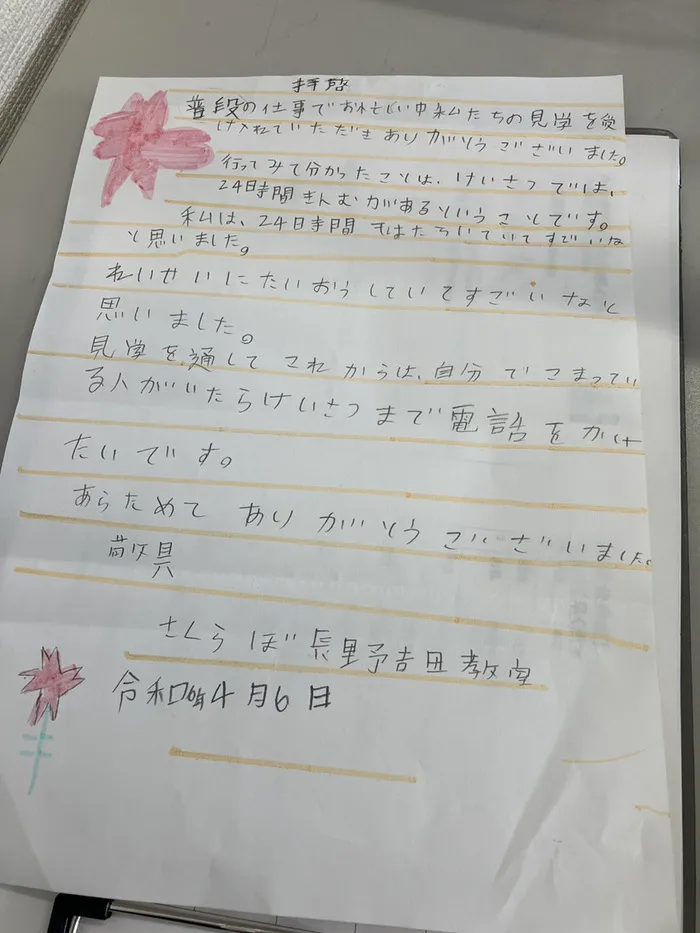 拝啓
普段の仕事でおいそがしい中私たちの見学を受
け入れていただきありがとうございました。
行ってみて分かったことは、けいさつでは、
24日時間きんむがあるということです。
私は、24日時間もはたらいていてすごいな
と思いました。
れいせいにたいおうしていてすごいなと
思いました。
見学を通してこれからは、自分でこまってい
る人がいたらけいさつまで電話をかけ
たいです。
あらためてありがとうございました
敬具
さくらぼ長野吉田教室
令和 年4月6日